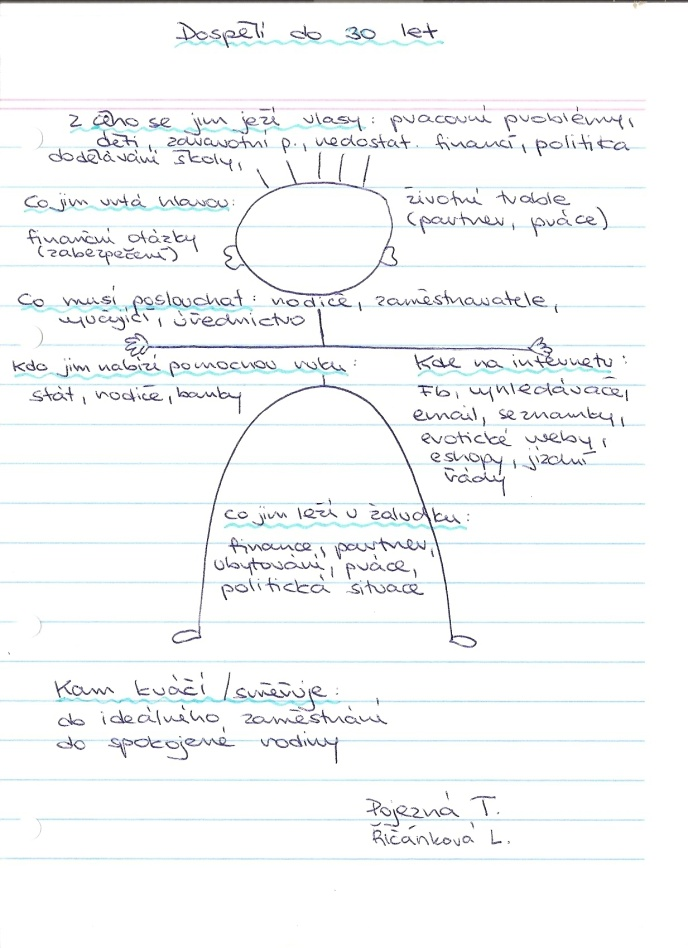 Dospělí do 30 let
Z čeho se jim ježí vlasy: pracovní problémy,
děti, zdravotní p., nedostat. financí, politika
dodělávání školy,
Co jim vrtá hlavou:
finanční otázky
(zabezpečení)
životní tvdole
(partner, práce)
Co musí poslouchat: rodiče, zaměstnavatele,
vyučující, úřednictvo
Kdo jim nabízí pomocnou ruku:
stát, rodiče, banky
Kde na internetu:
Fb, vyhledávače,
email, seznamky,
erotické weby,
eshopy, jízdní
řády
Co jim leží v žaludku:
finance, partner,
ubytování, práce,
politická situace
Kam kráčí / směřuje:
do ideálního zaměstnání
do spokojené rodiny
Pojezná T.
Řičánková L.